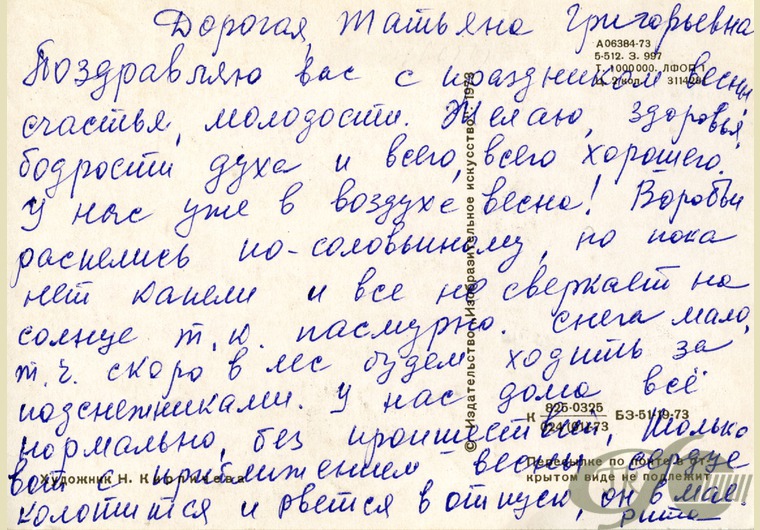 Дорогая Татьяна Григорьевна
Поздравляю вас с праздником весны,
счастья, молодости. Желаю, здоровья,
бодрости духа и всего, всего хорошего.
У нас уже в воздухе весна! Воробьи
распелись по-соловьиному, но пока
нет капели и все не сверкает на
солнце т.к. пасмурно. Снега мало,
т.ч. скоро в лес будем ходить за
подснежниками. У нас дома всё
нормально, без происшествий, только
вот с приближением весны сердце
колотится и рвется в отпуск, он в мае.
Рита
А06384-73
5-512. З. 997
Т. 1000000. ЛФОП 1
© Издательство «Изобразительное искусство». 1973
К 825-0325 БЗ-51-19-73
024(01)-73
Пересылке по почте в
крытом виде не подлежит
Художник Н. Киргичева